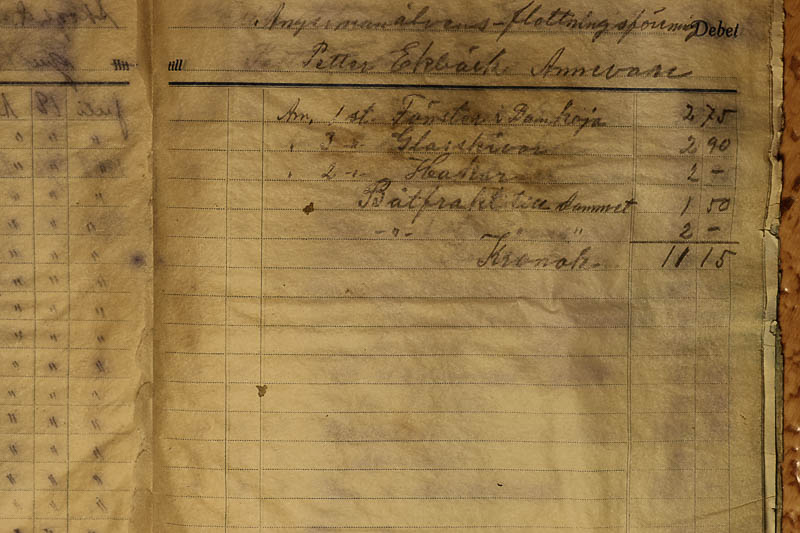 Ångermanälvens-flottningsförening Debet
till Petter Ekbäck Annevare
Am, 1 st. Fönster i Damkoja 2 75
" 3 " Glasskivor 2 90
" 2 " Hakar 2 -
Båtfrakt till Dammet 1 50
- " - " " 2 -
Kronor 11 15
till
juli 18